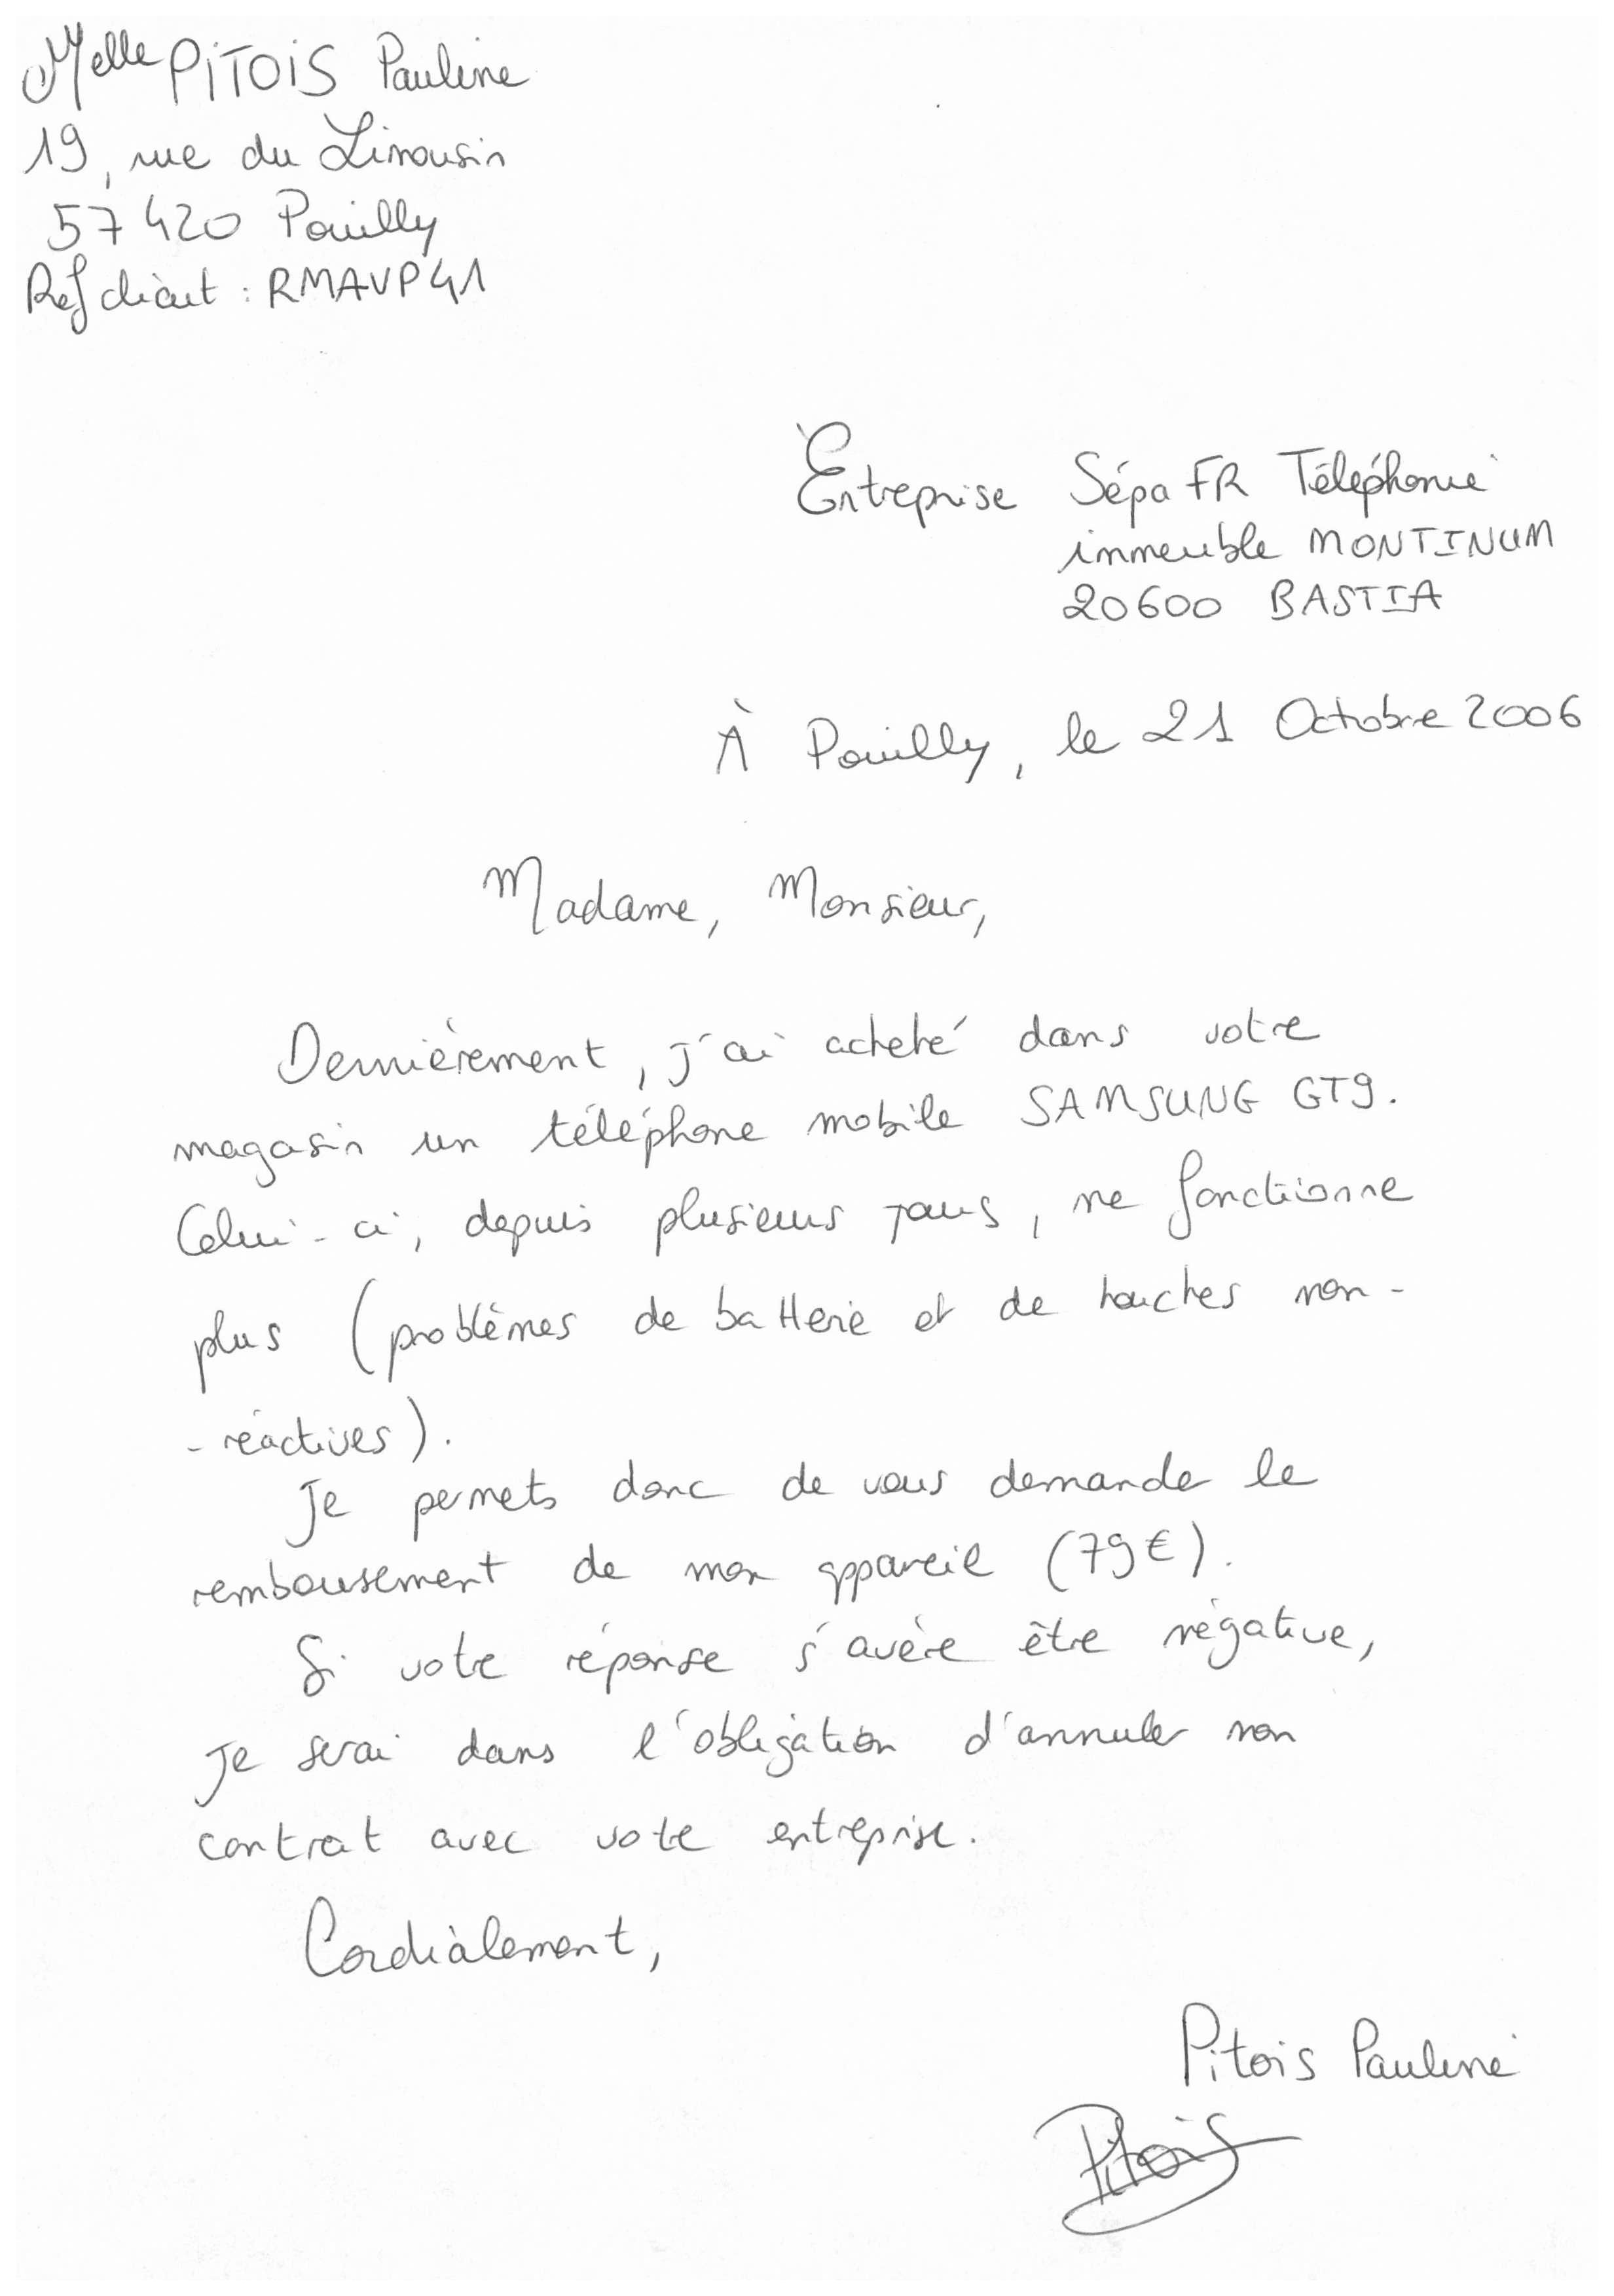 Melle PITOIS Pauline
19, rue du Limousin
57420 Pouilly
Ref client : RMAVP41
Entreprise Sépa FR Téléphonie
immeuble MONTINUM
20600 BASTIA
À Pouilly, le 21 Octobre 2006
Madame, Monsieur,
Dernièrement, j'ai acheté dans votre
magasin un téléphone mobile SAMSUNG GT9.
Celui-ci, depuis plusieurs jours, ne fonctionne
plus (problèmes de batterie et de touches non-
-réactives).
Je permets donc de vous demander le
remboursement de mon appareil (79€).
Si votre réponse s'avère être négative,
je serai dans l'obligation d'annuler mon
contrat avec votre entreprise.
Cordialement,
Pitois Pauline
Pitois